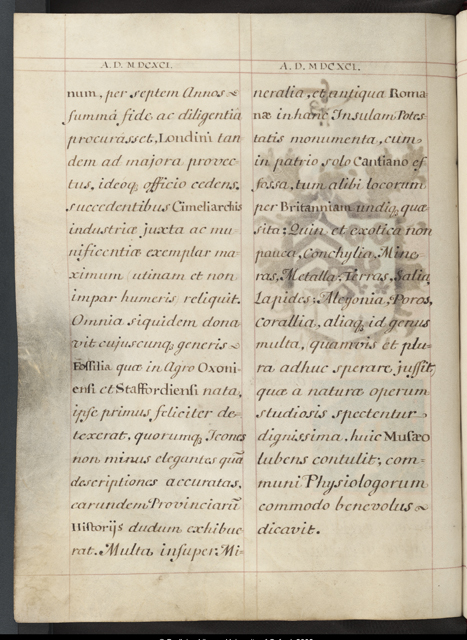 A. D. MDCXCI.
num, per septem Annos
summâ fide ac diligentiâ
procurâsset, Londini tan
dem ad majora provec
tus, ideoq; officio cedens,
succedentibus Cimeliarchis
industriæ juxta ac mu
nificentiæ exemplar ma
ximum (utinam et non
impar humeris) reliquit.
Omnia siquidem dona
vit cujuscunq; generis
Fossilia quæ in Agro Oxoni-
ensi et Staffordiensi nata,
ipse primus feliciter de
texerat, quorumq; Icones
non minus elegantes quā
descriptiones accuratas,
earundem Provinciarū
Historijs dudum exhibue
rat. Multa insuper Mi-
A. D. MDCXCI.
neralia, et antiqua Roma
næ in hanc Insulam Potes
tatis monumenta, cum
in patrio solo Cantiano ef
fossa, tum alibi locorum
per Britanniam undiq; quæ
sita: Quin et exotica non
pauca, Conchylia, Mine
ras, Metalla, Terras, Salia,
Lapides, Alcyonia, Poros,
Corallia, aliaq; id genus
multa, quamvis et plu
ra adhuc sperare jussit,
quæ a naturæ operum
studiosis spectentur
dignissima, huic Musæo
lubens contulit; com-
muni Physiologorum
commodo benevolus
dicavit.